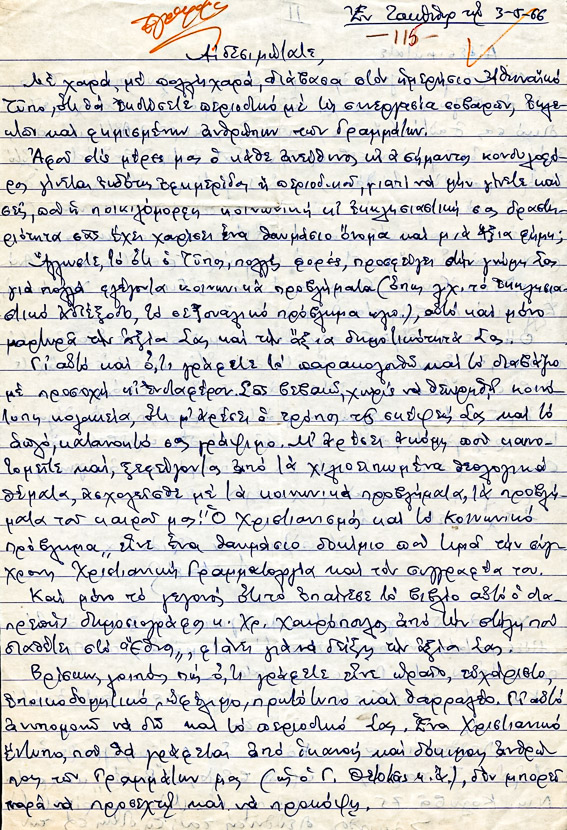 Ἐν Ξάνθῃ τῇ 3-5-66
-115-
Αἰδεσιμώτατε,
Μὲ χαρά, μὲ πολλὴ χαρά, διάβασα στὸν ἡμερήσιο Ἀθηναϊκό
Τύπο, ὅτι θὰ ἐκδώσετε περιοδικὸ μὲ τὴ συνεργασία σοβαρῶν, ἐκλε-
κτῶν καὶ φημισμένων ἀνθρώπων τῶν Γραμμάτων.
Ἀφοῦ στὶς μέρες μας ὁ κάθε ἀνεύθυνος κι ἀσήμαντος κονδυλοφό-
ρος γίνεται ἐκδότης ἐφημερίδος ἢ περιοδικοῦ, γιατί νὰ μὴν γίνετε καὶ
σεῖς, ποὺ ἡ ποικιλόμορφη κοινωνικὴ κι ἐκκλησιαστική σας δραστη-
ριότητα σᾶς ἔχει χαρίσει ἕνα θαυμάσιο ὄνομα καὶ μιὰ ἄξια φήμη;
Ἄλλωστε, τὸ ὅτι ὁ Τύπος, πολλὲς φορές, προσφεύγει στὴν γνώμη Σας
γιὰ πολλὰ φλέγοντα κοινωνικὰ προβλήματα (ὅπως λ.χ. τὸ ἐκκλησια-
στικὸ ἀδιέξοδο, τὸ σεξουαλικὸ πρόβλημα κλπ.), αὐτὸ καὶ μόνο
μαρτυρᾶ τὴν ἀξία Σας καὶ τὴν ἄξια δημοτικότητά Σας.
Γι' αὐτὸ καὶ ὅ,τι γράφετε τὸ παρακολουθῶ καὶ τὸ διαβάζω
μὲ προσοχὴ κι ἐνδιαφέρον. Σᾶς βεβαιῶ, χωρὶς νὰ θεωρηθῇ κοινό-
τυπη κολακεία, ὅτι μ' ἀρέσει ὁ τρόπος τῆς σκέψεώς Σας καὶ τὸ
ἁπλό, κατανοητό σας γράψιμο. Μ' ἀρέσει ἀκόμη ποὺ καινο-
τομεῖτε καί, ξεφεύγοντας ἀπὸ τὰ χιλιοειπωμένα θεολογικὰ
θέματα, ἀσχολεῖσθε μὲ τὰ κοινωνικὰ προβλήματα, τὰ προβλή-
ματα τοῦ καιροῦ μας. "Ὁ Χριστιανισμὸς καὶ τὸ Κοινωνικὸ
πρόβλημα" εἶνε ἕνα θαυμάσιο δοκίμιο ποὺ τιμᾶ τὴν σύγ-
χρονη Χριστιανικὴ Γραμματολογία καὶ τὸν συγγραφέα του.
Καὶ μόνο τὸ γεγονός, ὅτι τὸ ἐπαίνεσε τὸ βιβλίο αὐτὸ ὁ δια-
πρεπὴς δημοσιογράφος κ. Χρ. Χαιρόπουλος ἀπὸ τὴν στήλη ποὺ
διαθέτει στὸ "Ἔθνος", φτάνει γιὰ νὰ δείξῃ τὴν ἀξία Σας.
Βρίσκω, λοιπόν, πὼς ὅ,τι γράφετε εἶνε ὡραῖο, εὐχάριστο,
ἐποικοδομητικό, ὠφέλιμο, πρωτότυπο καὶ θαρραλέο. Γι' αὐτὸ
ἀνυπομονῶ νὰ δῶ καὶ τὸ περιοδικό Σας. Ἕνα Χριστιανικὸ
ἔντυπο, ποὺ θὰ γράφεται ἀπὸ ἱκανοὺς καὶ δόκιμους ἀνθρώ-
πους τῶν Γραμμάτων μας ὁ Γ. Θεοτοκᾶς κ.ἄ.), δὲν μπορεῖ
παρὰ νὰ προσεχτῇ καὶ νὰ προκόψῃ.